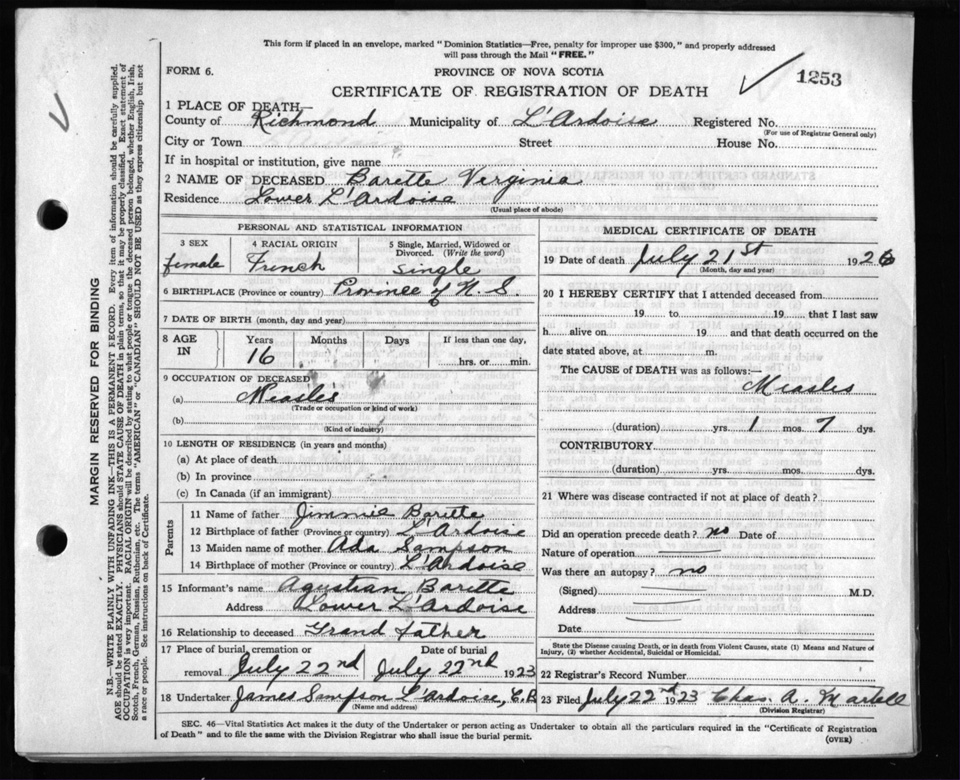 This form if placed in an envelope, marked "Dominion Statistics—Free, penalty for improper use $300," and properly addressed
will pass through the Mail "FREE."
FORM 6.
PROVINCE OF NOVA SCOTIA
1253
CERTIFICATE OF REGISTRATION OF DEATH
1 PLACE OF DEATH,—
County of Richmond Municipality of L'Ardoise Registered No.
(For use of Registrar General only)
City or Town Street House No.
If in hospital or institution, give name
2 NAME OF DECEASED Barette Verginia
Residence Lower L'Ardoise
(Usual place of abode)
PERSONAL AND STATISTICAL INFORMATION
3 SEX 4 RACIAL ORIGIN 5 Single, Married, Widowed or
Divorced. (Write the word)
female French single
6 BIRTHPLACE (Province or country) Province of N. S.
7 DATE OF BIRTH (month, day and year)
8 AGE IN Years Months Days If less than one day,
16 hrs. or min.
9 OCCUPATION OF DECEASED
(a) Measles
(Trade or occupation or kind of work)
(b)
(Kind of industry)
10 LENGTH OF RESIDENCE (in years and months)
(a) At place of death
(b) In province
(c) In Canada (if an immigrant)
Parents
11 Name of father Jimmie Barette
12 Birthplace of father (Province or country) L'Ardoise
13 Maiden name of mother Ada Sampson
14 Birthplace of mother (Province or country) L'Ardoise
15 Informant's name Agustian Barette
Address Lower L'Ardoise
16 Relationship to deceased Grand father
17 Place of burial, cremation or removal Date of burial
July 22nd July 22nd 1923
18 Undertaker James Sampson L'Ardoise, C.B
(Name and address)
MEDICAL CERTIFICATE OF DEATH
19 Date of death July 21st 192
(Month, day and year)
20 I HEREBY CERTIFY that I attended deceased from
19 to 19 that I last saw
h alive on 19 and that death occurred on the
date stated above, at m.
The CAUSE OF DEATH was as follows:—
Measles
(duration) yrs. 1 mos. 7 dys.
CONTRIBUTORY
(duration) yrs. mos. dys.
21 Where was disease contracted if not at place of death?
Did an operation precede death? no Date of
Nature of operation
Was there an autopsy? no
(Signed) M.D.
Address
Date
State the Disease causing Death, or in death from Violent Causes, state (1) Means and Nature of
Injury, (2) whether Accidental, Suicidal or Homicidal.
22 Registrar's Record Number
23 Filed July 22nd 1923 Chas. A. Martell
(Division Registrar)
SEC. 46—Vital Statistics Act makes it the duty of the Undertaker or person acting as Undertaker to obtain all the particulars required in the "Certificate of Registration
of Death" and to file the same with the Division Registrar who shall issue the burial permit.
(OVER)
MARGIN RESERVED FOR BINDING
N.B.—WRITE PLAINLY WITH UNFADING INK—THIS IS A PERMANENT RECORD. Every item of information should be carefully supplied.
AGE should be stated EXACTLY. PHYSICIANS should STATE CAUSE OF DEATH in plain terms, so that it may be properly classified. Exact statement of
OCCUPATION is very important. RACIAL ORIGIN will be described by stating to what people or tongue the deceased person belonged, whether English, Irish,
Scotch, French, German, Russian, Ruthenian, etc. The terms "AMERICAN" or "CANADIAN" SHOULD NOT BE USED as they express citizenship but not
a race or people. See instructions on back of Certificate.